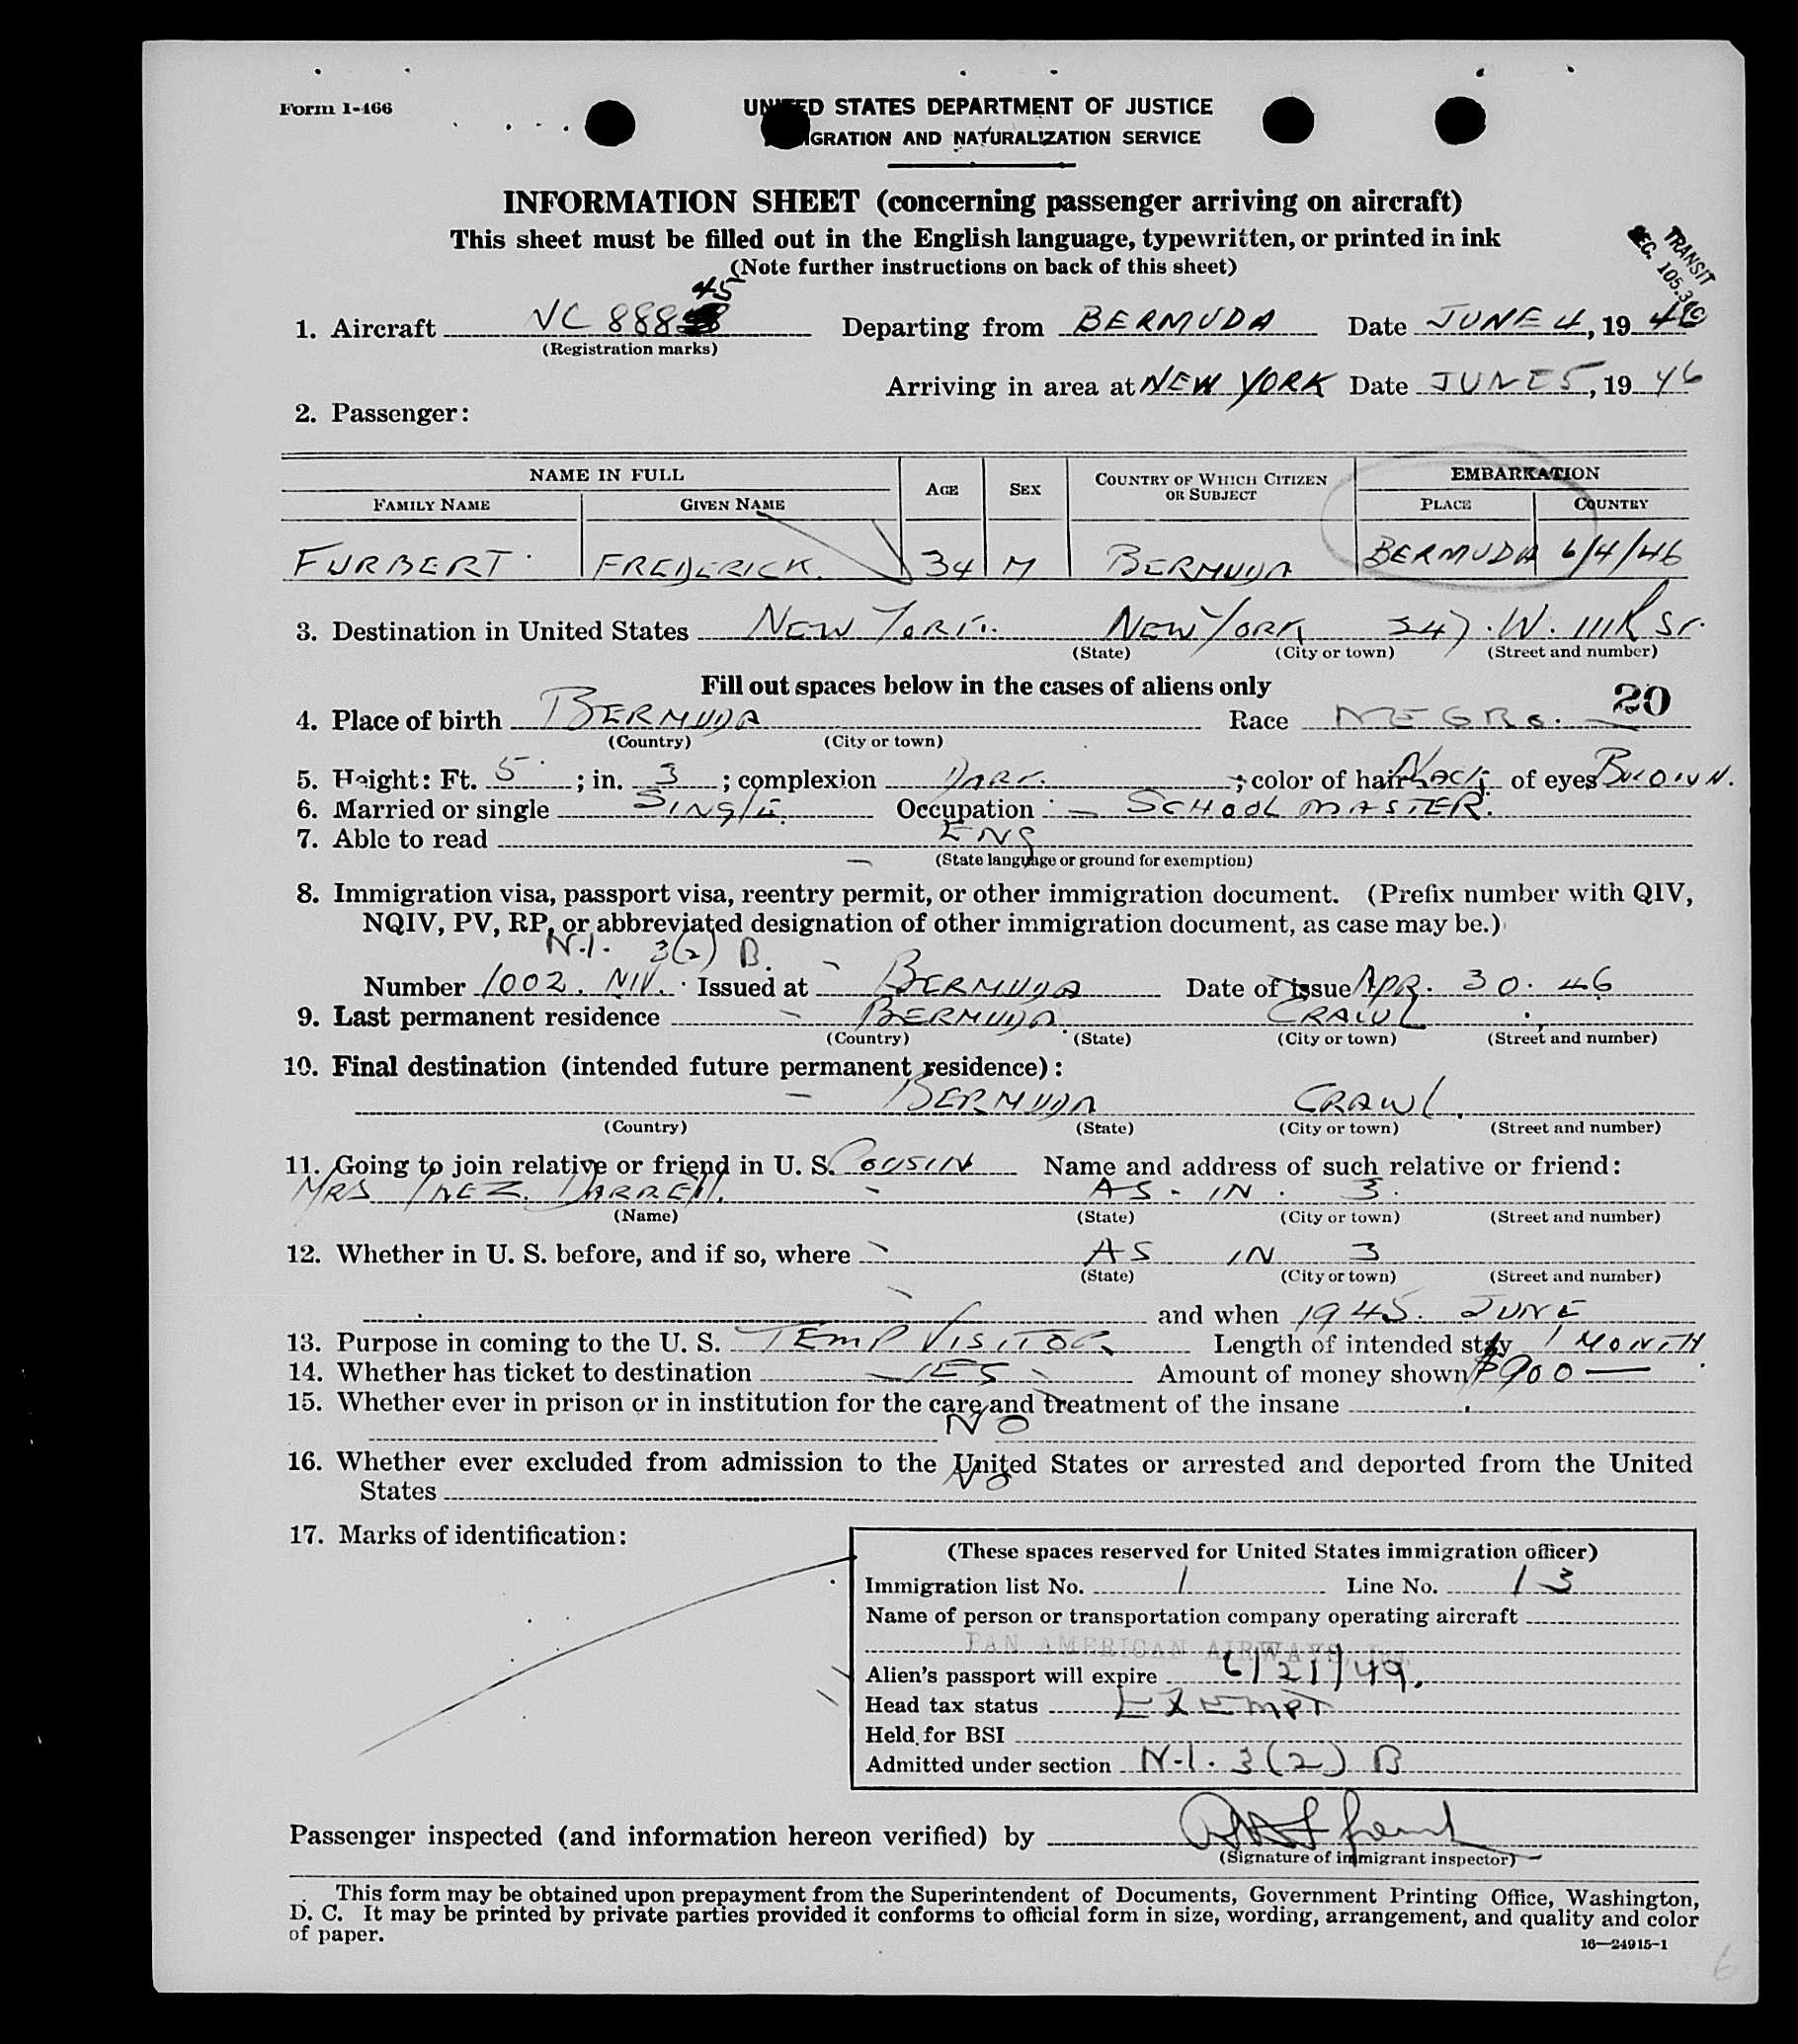 Form I-466
UNITED STATES DEPARTMENT OF JUSTICE
IGRATION AND NATURALIZATION SERVICE
INFORMATION SHEET (concerning passenger arriving on aircraft)
This sheet must be filled out in the English language, typewritten, or printed in ink
(Note further instructions on back of this sheet)
TRANSIT
SEC. 105.3
45
1. Aircraft NC 888 Departing from BERMUDA Date JUNE 4, 19 46
(Registration marks)
Arriving in area at NEW YORK Date JUNE 5, 19 46
2. Passenger:
NAME IN FULL AGE SEX COUNTRY OF WHICH CITIZEN OR SUBJECT EMBARKATION
FAMILY NAME GIVEN NAME PLACE COUNTRY
FURBERT FREDERICK. 34 M BERMUDA BERMUDA 6/4/46
3. Destination in United States NEW YORK. NEW YORK 347. W. 111th ST.
(State) (City or town) (Street and number)
Fill out spaces below in the cases of aliens only
20
4. Place of birth BERMUDA Race NEGRO.
(Country) (City or town)
5. Height: Ft. 5 ; in. 3 ; complexion DARK. ; color of hair Black of eyes BROWN.
6. Married or single SINGLE Occupation SCHOOLMASTER.
7. Able to read ENG
(State language or ground for exemption)
8. Immigration visa, passport visa, reentry permit, or other immigration document. (Prefix number with QIV,
NQIV, PV, RP, or abbreviated designation of other immigration document, as case may be.)
N.I. 3(2) B.
Number 1002. NIV. Issued at BERMUDA Date of issue APR. 30. 46
9. Last permanent residence BERMUDA. CRAWL
(Country) (State) (City or town) (Street and number)
10. Final destination (intended future permanent residence):
BERMUDA CRAWL.
(Country) (State) (City or town) (Street and number)
11. Going to join relative or friend in U. S. COUSIN Name and address of such relative or friend:
MRS INEZ. DARRELL. AS - IN . 3.
(Name) (State) (City or town) (Street and number)
12. Whether in U. S. before, and if so, where AS IN 3
(State) (City or town) (Street and number)
and when 1945. JUNE
13. Purpose in coming to the U. S. TEMP VISITOR Length of intended stay 1 MONTH
14. Whether has ticket to destination YES Amount of money shown $900—
15. Whether ever in prison or in institution for the care and treatment of the insane
NO
16. Whether ever excluded from admission to the United States or arrested and deported from the United
States NO
17. Marks of identification:
(These spaces reserved for United States immigration officer)
Immigration list No. 1 Line No. 13
Name of person or transportation company operating aircraft
PAN AMERICAN AIRWAYS, Inc.
Alien's passport will expire 6/21/49.
Head tax status EXEMPT
Held for BSI
Admitted under section N-I. 3(2) B
Passenger inspected (and information hereon verified) by
(Signature of immigrant inspector)
This form may be obtained upon prepayment from the Superintendent of Documents, Government Printing Office, Washington,
D. C. It may be printed by private parties provided it conforms to official form in size, wording, arrangement, and quality and color
of paper.
16—24915-1
6